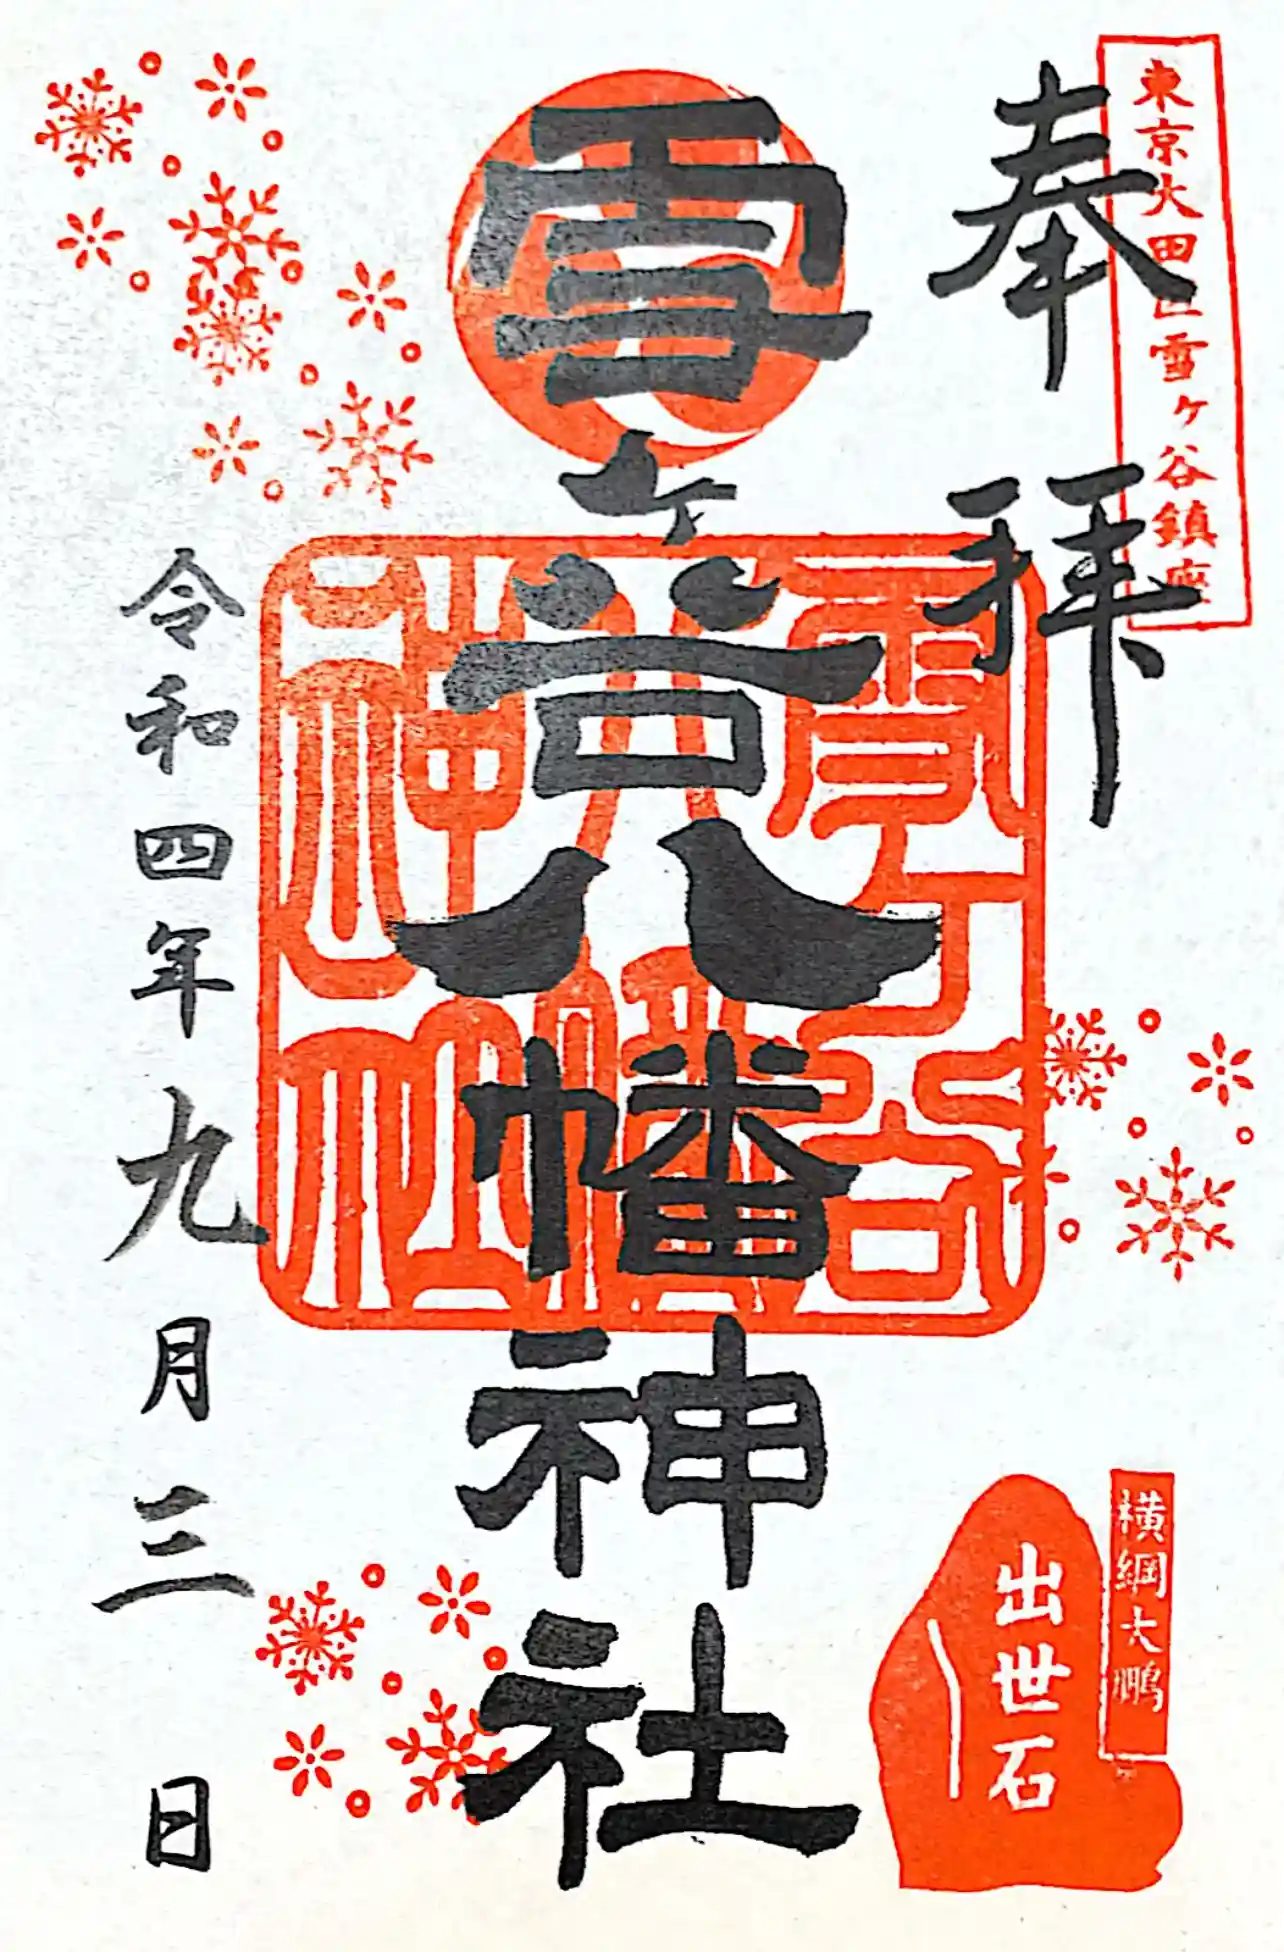 東京大田区雪ヶ谷鎮座
奉拝
雪ヶ谷八幡神社
雪ケ谷
八幡
神社
令和四年九月三日
横綱大鵬
出世石